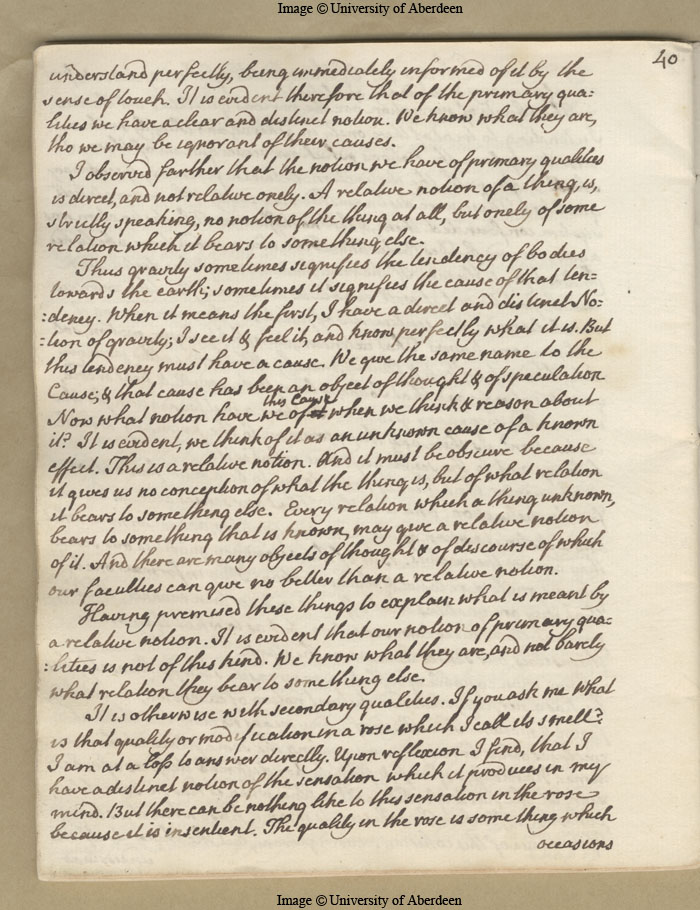 Image © University of Aberdeen
40
understand perfectly, being immediately informed of it by the
sense of touch. It is evident therefore that of the primary qua:
lities we have a clear and distinct notion. We know what they are,
tho we may be ignorant of their causes.
I observed farther that the notion we have of primary qualities
is direct, and not relative onely. A relative notion of a thing, is,
strictly speaking, no notion of the thing at all, but onely of some
relation which it bears to something else.
Thus gravity sometimes signifies the tendency of bodies
towards the earth; sometimes it signifies the cause of that ten=
:dency. When it means the first, I have a direct and distinct No:
:tion of gravity; I see it & feel it, and know perfectly what it is. But
this tendency must have a cause. We give the same name to the
Cause; & that cause has been an object of thought & of speculation
this cause
Now what notion have we of it when we think & reason about
it? It is evident, we think of it as an unknown cause of a known
effect. This is a relative notion. And it must be obscure because
it gives us no conception of what the thing is, but of what relation
it bears to something else. Every relation which a thing unknown,
bears to something that is known, may give a relative notion
of it. And there are many objects of thought & of discourse of which
our faculties can give no better than a relative notion.
Having premised these things to explain what is meant by
a relative notion. It is evident that our notion of primary qua:
:lities is not of this kind. We know what they are, and not barely
what relation they bear to something else.
It is otherwise with secondary qualities. If you ask me what
is that quality or modification in a rose which I call its smell?
I am at a loss to answer directly. Upon reflexion I find, that I
have a distinct notion of the sensation which it produces in my
mind. But there can be nothing like to this sensation in the rose
because it is insentient. The quality in the rose is something which
occasions
Image © University of Aberdeen